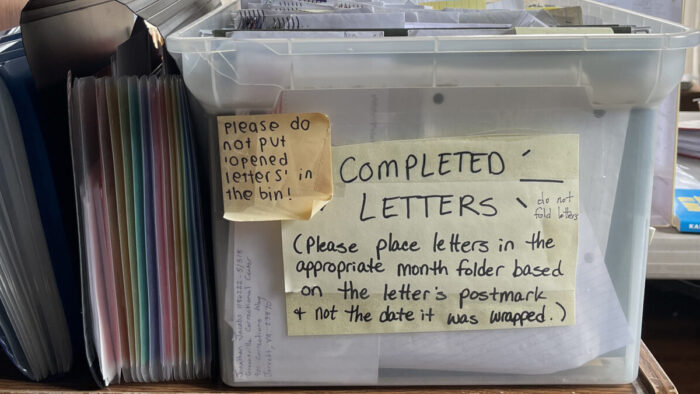 Please do
not put
'opened
letters' in
the bin!
COMPLETED
LETTERS
do not
fold letters
(Please place letters in the
appropriate month folder based
on the letter's postmark
+ not the date it was wrapped.)
Correctional Center
Corrections Way
Jarratt, VA 23870